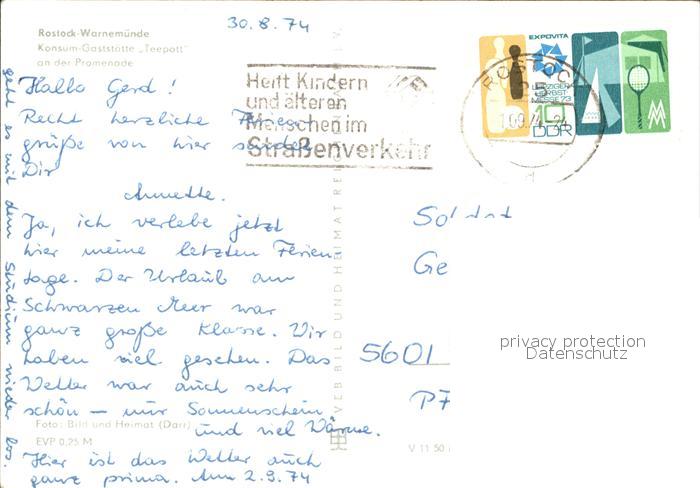 30.8.74
Rostock-Warnemünde
Konsum-Gaststätte „Teepott"
an der Promenade
Hallo Gerd!
Recht herzliche Ferien-
grüße von hier sendet
Dir
Annette.
Ja, ich verlebe jetzt
hier meine letzten Ferien-
tage. Der Urlaub am
Schwarzen Meer war
ganz große Klasse. Wir
haben viel gesehen. Das
Wetter war auch sehr
schön – nur Sonnenschein
und viel Wärme.
Hier ist das Wetter auch
ganz prima. Am 2.9.74
geht es mit dem Studium wieder los.
Foto: Bild und Heimat (Darr)
EVP 0,25 M
VEB BILD UND HEIMAT REI
V 11 50
Helft Kindern
und älteren
Menschen im
Straßenverkehr
EXPOVITA
LEIPZIGER
HERBST-
MESSE 73
10
DDR
ROSTOC
25
Soldat
Ge
5601
PF
privacy protection
Datenschutz